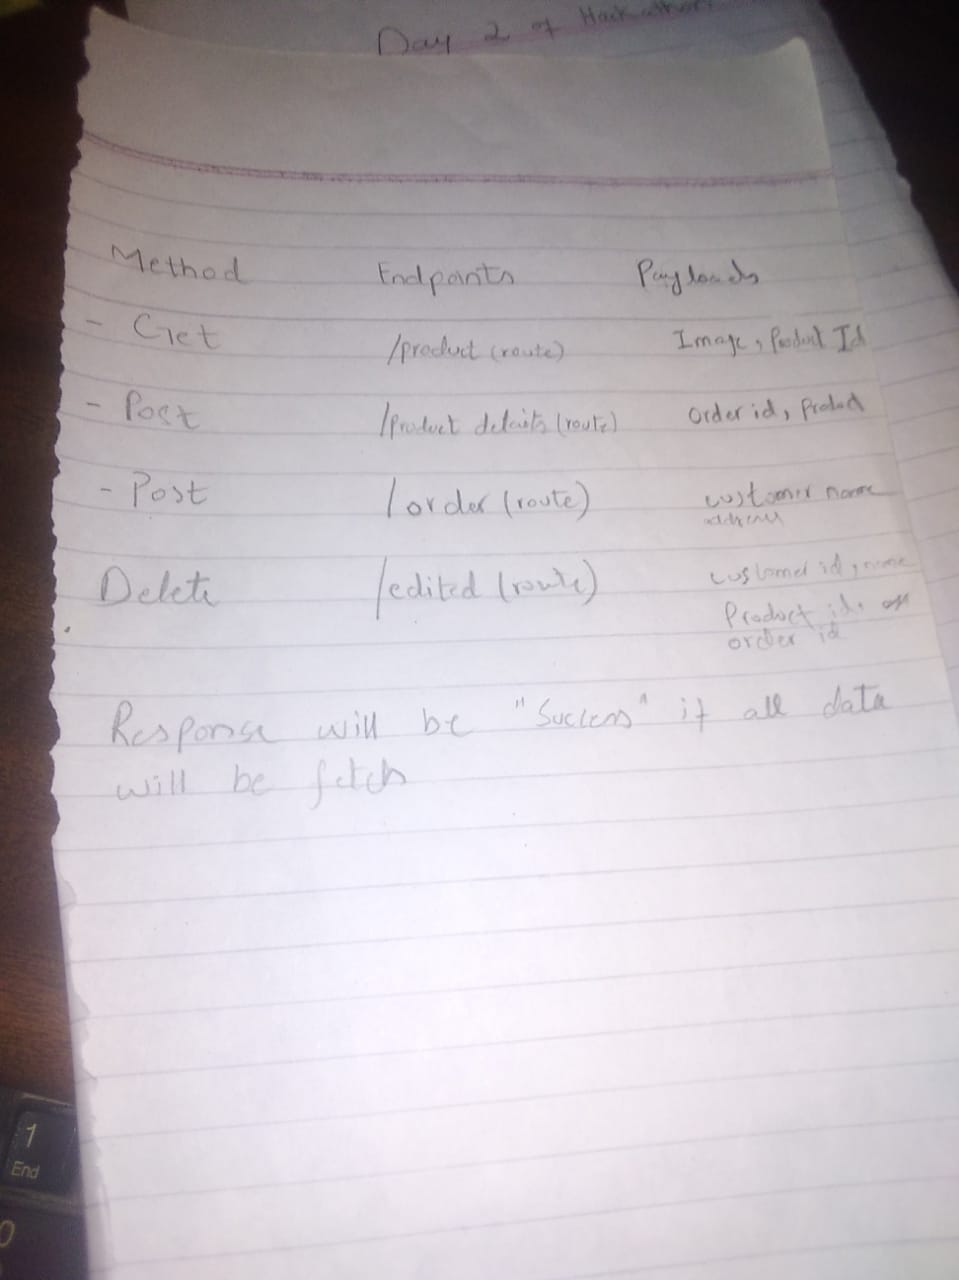 Day 2 of Hackathon
Method Endpoints Payloads
- Get /product (route) Image, Product Id
- Post /product details (route) Order id, Product
- Post /order (route) customer name
address
Delete /edited (route) customer id, name
Product id, or
order id
Response will be "Success" if all data
will be fetch
1
End
0